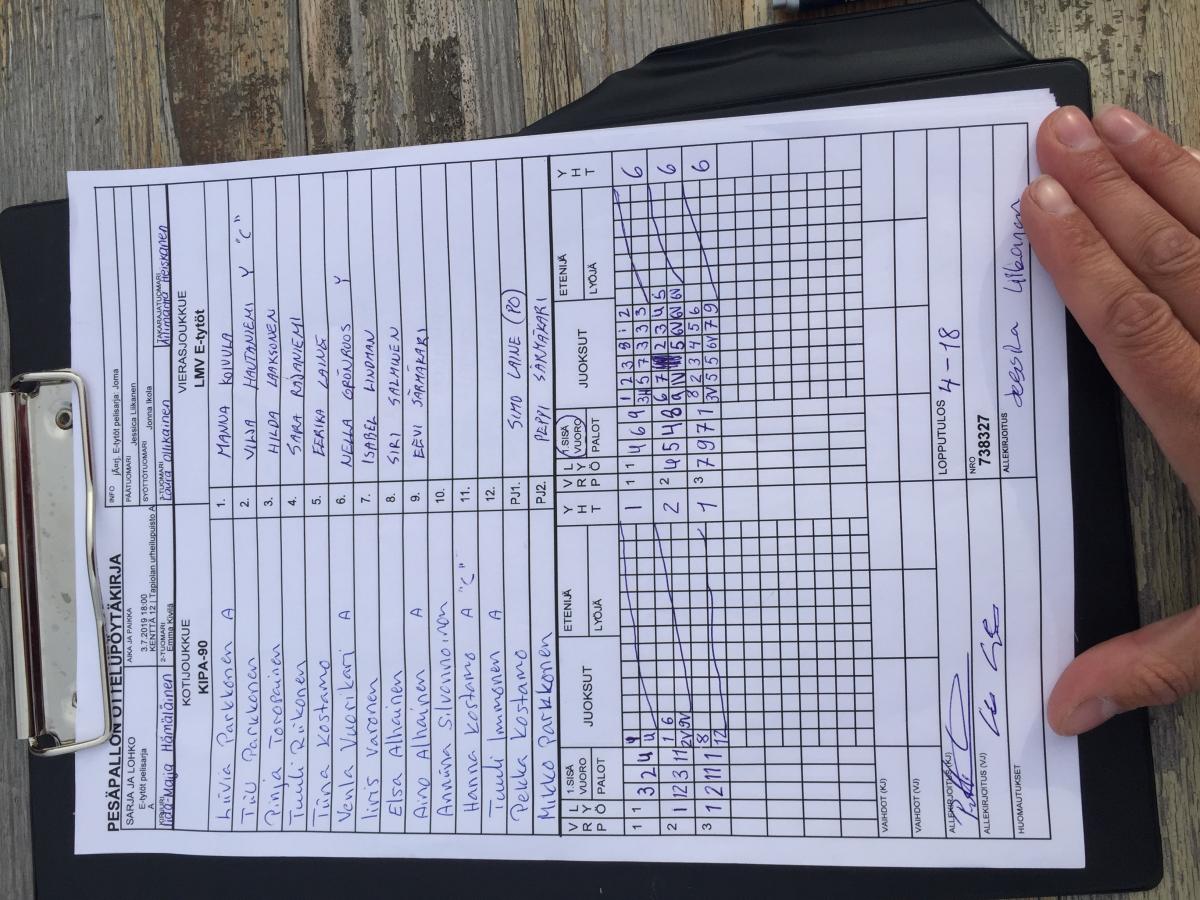 PESÄPALLON OTTELUPÖYTÄKIRJA
SARJA JA LOHKO
E-tytöt pelisarja
A
AIKA JA PAIKKA
3.7.2019 18:00
KENTTÄ 12 | Tapiolan urheilupuisto A
INFO
E-tytöt pelisarja: Joma
PÄÄTUOMARI Jessica Liikanen
SYÖTTÖTUOMARI Jonna Ikola
KIRJURI
Iida-Maija Hämäläinen
2-TUOMARI
Emma Kivilä
3-TUOMARI
Laura Ollikainen
TAKARAJATUOMARI
Heiskanen
KOTIJOUKKUE
KIPA-90
VIERASJOUKKUE
LMV E-tytöt
Liivia Parkkonen A 1. MANNA KOIVULA
Tiiu Parkkonen 2. VILJA HAUTANIEMI Y "C"
Pinja Toropainen 3. HILDA LAAKSONEN
Tuuli Riikonen 4. SARA RAJANIEMI
Tiina Kostamo 5. EERIKA LAINE
Venla Vuorikari A 6. NELLA GRÖNROOS Y
Iiris Varonen 7. ISABEL LINDMAN
Elsa Alhainen 8. SIRI SALMINEN
Aino Alhainen A 9. EEVI SÄRMÄKARI
Anniina Silvennoinen 10.
Hanna Kostamo A "C" 11.
Tuuli Immonen A 12.
Pekka Kostamo PJ1. SIMO LAINE (PO)
Mikko Parkkonen PJ2. PEPPI SÄRMÄKARI
V R P L Y Ö 1.SISÄ VUORO PALOT JUOKSUT ETENIJÄ LYÖJÄ Y H T V R P L Y Ö 1.SISÄ VUORO PALOT JUOKSUT ETENIJÄ LYÖJÄ Y H T
1 1 3 2 4 4 4 1 1 1 4 6 9 6
2 1 12 3 11 1 6 2 2 4 5 4 8 6
3 1 2 11 1 8 12 1 3 7 9 7 1 6
VAIHDOT (KJ)
VAIHDOT (VJ)
ALLEKIRJOITUS (KJ)
LOPPUTULOS 4-18
ALLEKIRJOITUS (VJ)
NRO
738327
HUOMAUTUKSET
ALLEKIRJOITUS
Jessica Liikanen